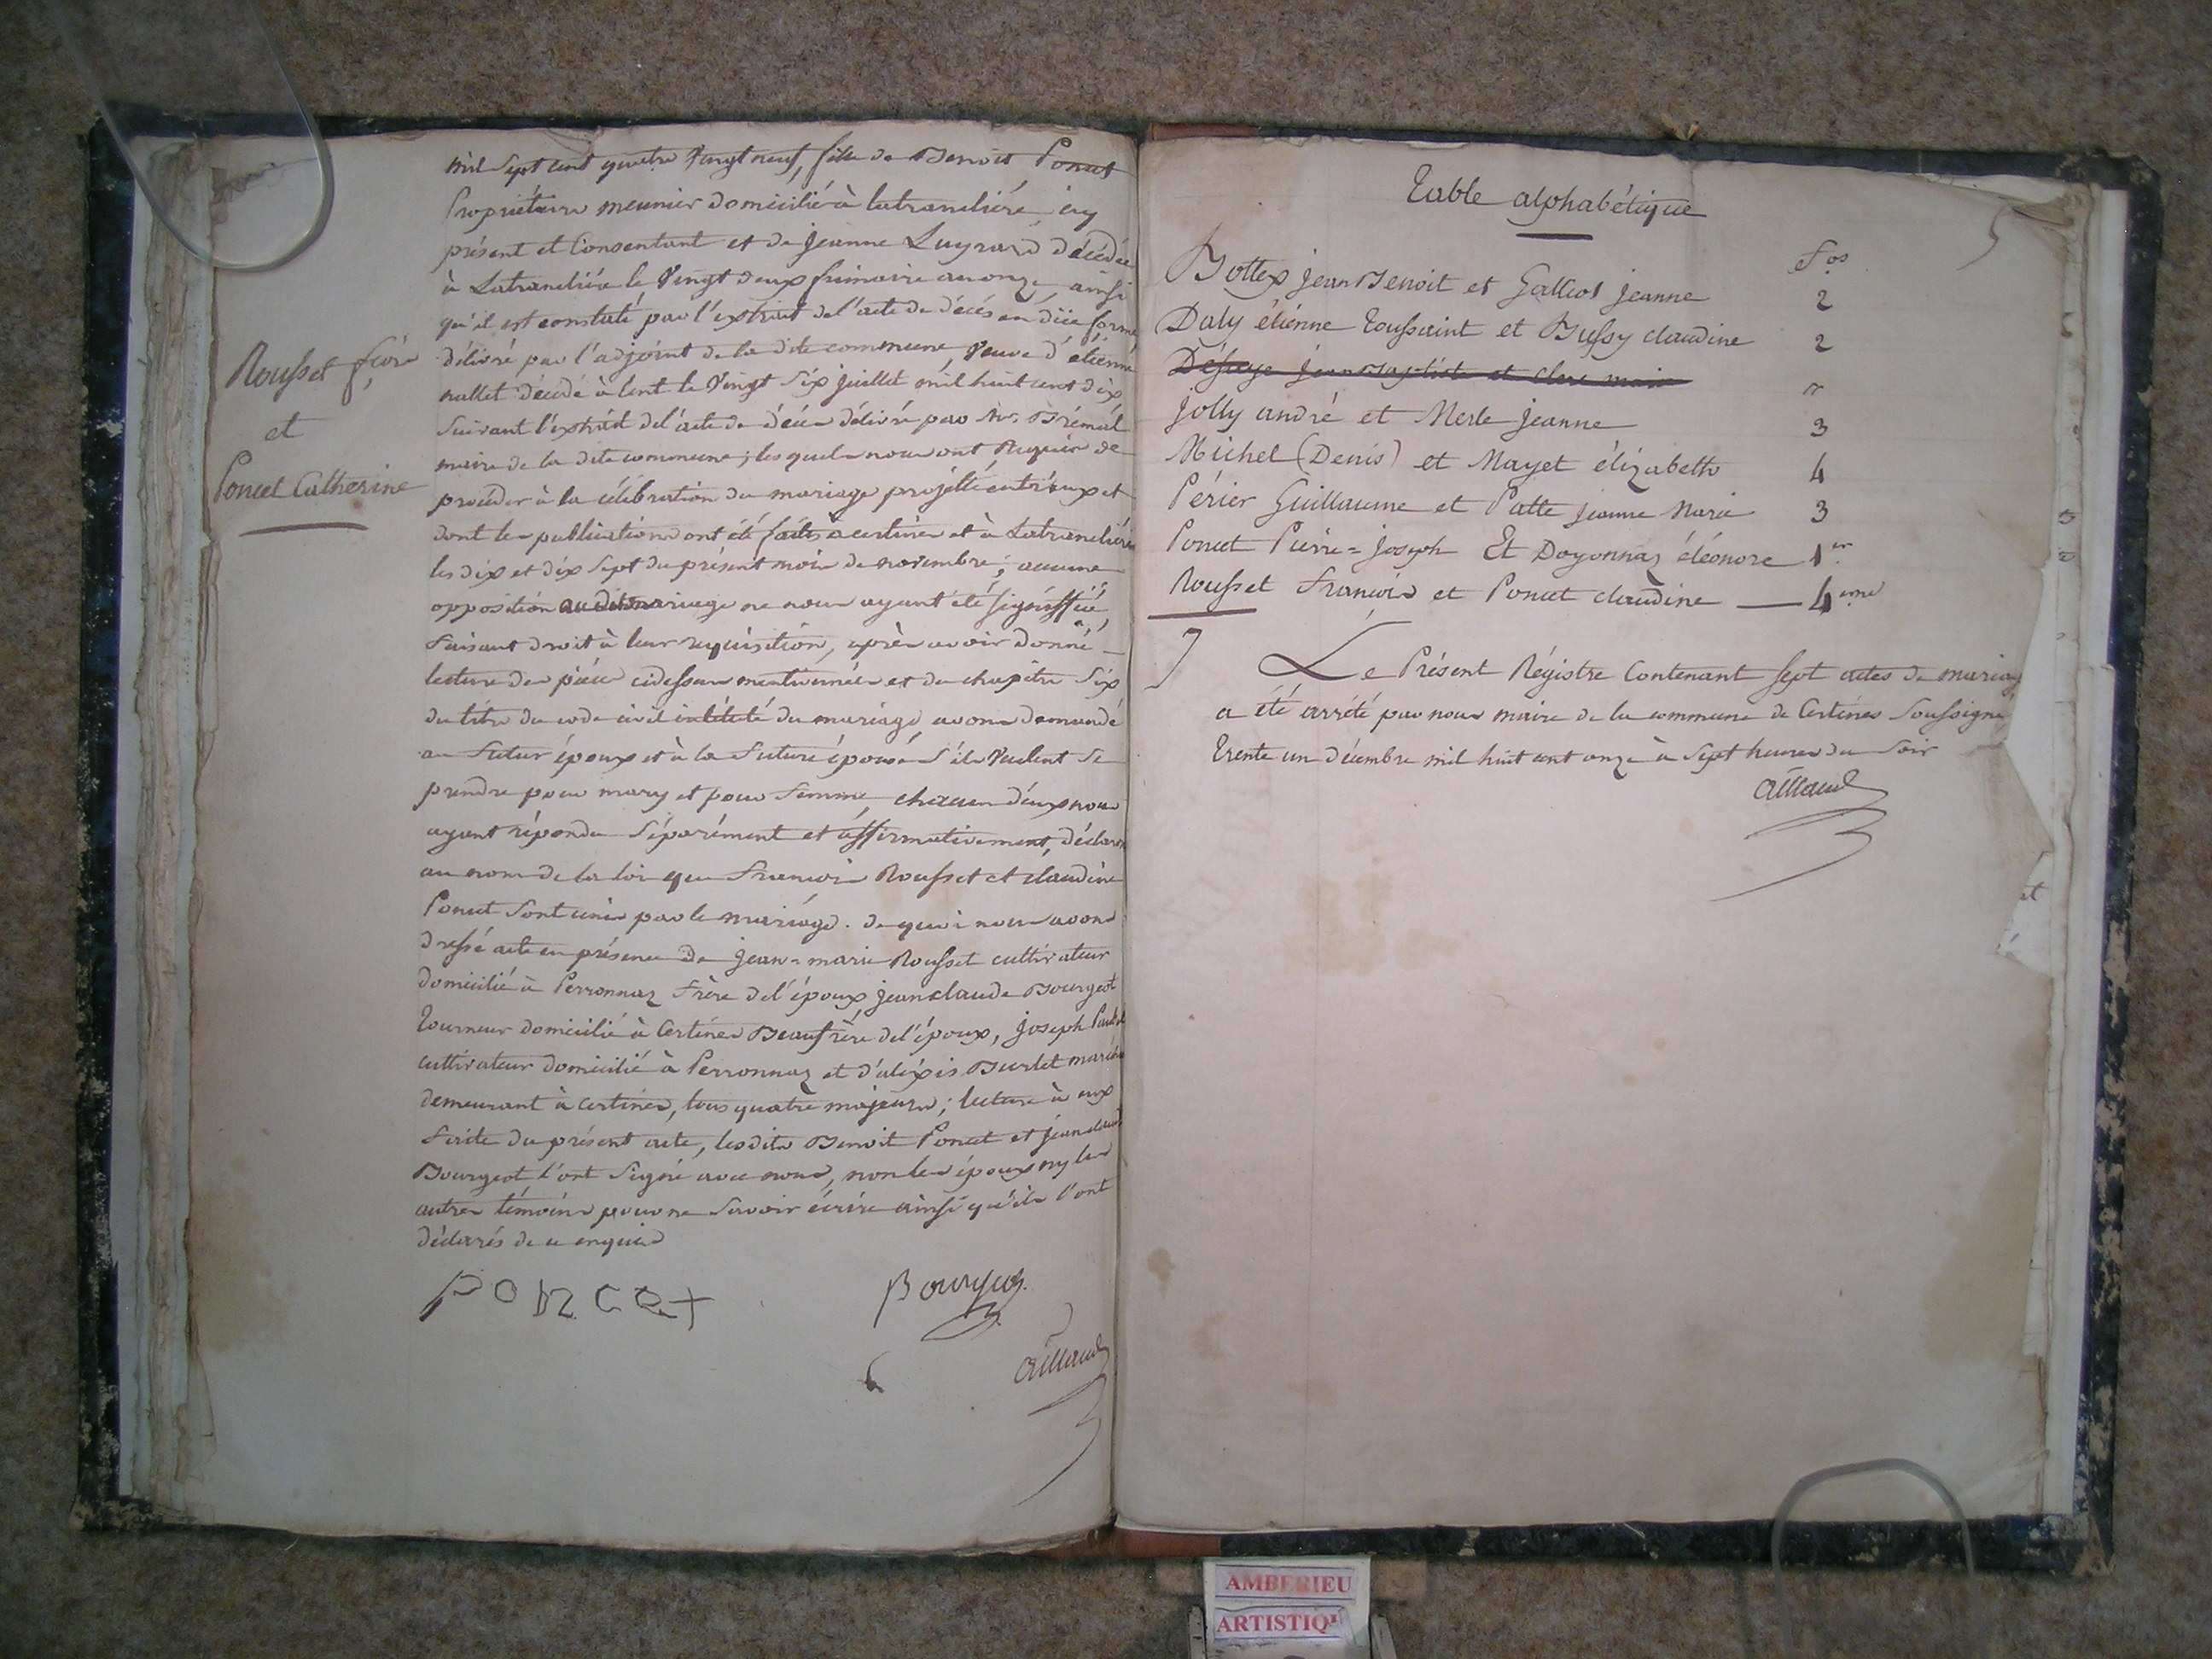 Rousset fçois
et
Poncet Catherine
mil sept cent quatre vingt neuf, fille de Benoit Poncet
Propriétaire meunier domicilié à latranclière, icy
présent et Consentant et de jeanne Luyrard décédée
à Latranclière le Vingt deux frimaire an onze, ainsi
qu'il est constaté par l'extrait de l'acte de décés en düe forme
délivré par l'adjoint de la dite commune, Veuve d'étienne
nallet décédé à lent le Vingt Six juillet mil huit cent dix
Suivant l'extrait del'acte de décés délivré par Mr.
maire de la dite commune; lesquels nous ont Requis de
procéder à la célébration du mariage projetté entr'eux et
dont les publications ont été faites a certines et à Latranclière
les dix et dix Sept du présent mois de novembre; aucune
opposition au dit mariage ne nous ayant été signiffiée,
faisant droit à leur requisition, après avoir donné
lecture des pièces cidessus mentionnées et du chapitre Six
du titre du code civil intitulé du mariage, avons demandé
au futur époux et à la future épouse S'ils Veulent Se
prendre pour mary et pour femme, chacun d'eux nous
ayant répondu Séparément et affirmativement, déclarons
au nom de la loi que francois Rousset et claudine
Poncet Sont unis par le mariage. de quoi nous avons
dressé acte en présence de jean=marie Rousset cultivateur
domicilié à Perronnaz frère del'époux, jeanclaude Bourgeot
tourneur domicilié à Certines Beaufrère del'époux, joseph
cultivateur domicilié à Perronnaz et d'aléxis Burlet
demeurant à certines, tous quatre majeurs; lecture à eux
faite du présent acte, lesdits Benoit Poncet et jeanclaude
Bourgeot l'ont Signé avec nous, non les époux ny les
autres témoins pour ne Savoir écrire ainsi qu'ils l'ont
déclarés de ce enquis
PONCET Bourgeot
aillaud
Table alphabétique
5
Fos
Bottex jean Benoit et Galliot jeanne 2
Daly étienne toussaint et Bussy claudine 2
jolly andré et Merle jeanne 3
Michel (Denis) et Mayet élizabeth 4
Périer Guillaume et Patte jeanne Marie 3
Poncet Pierre=joseph Et Doyonnaz éléonore 1er
Rousset francois et Poncet claudine — 4eme
7
Le Présent Régistre Contenant sept actes de mariag
a été arrété par nous maire de la commune de Certines Soussigné
trente un décembre mil huit cent onze à Sept heures du Soir
aillaud
AMBERIEU
ARTISTIQU